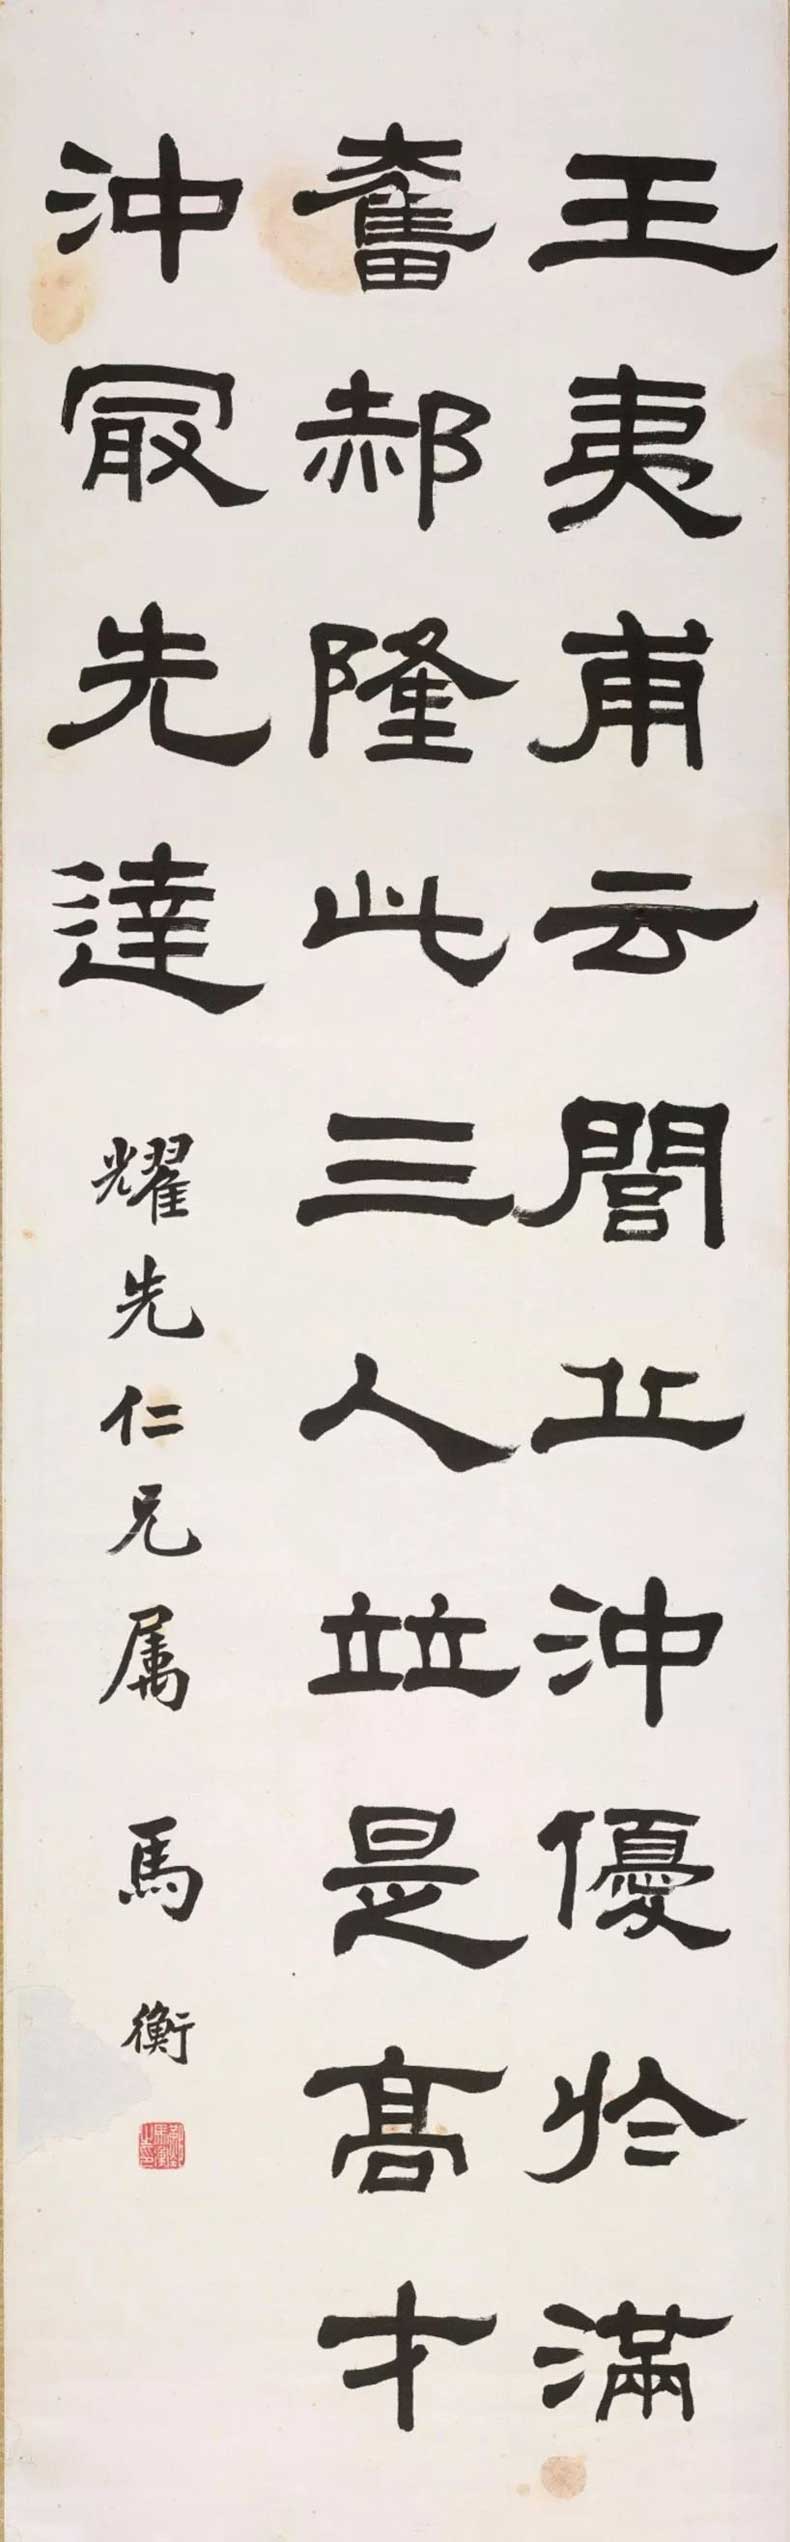 王夷甫云閭丘沖優於滿
奮郝隆此三人竝是高才
沖冣先達
耀先仁兄属 馬衡